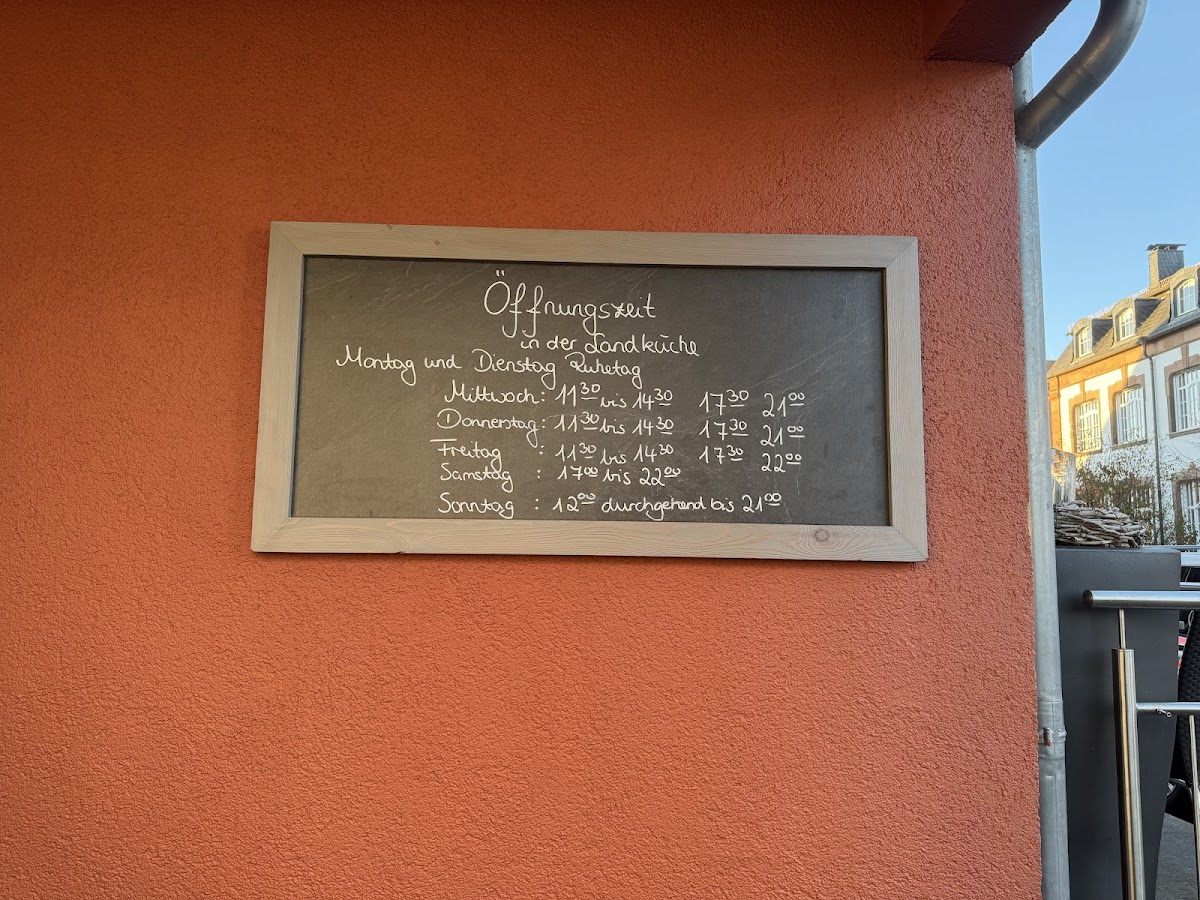 Öffnungszeit
in der Landküche
Montag und Dienstag Ruhetag
Mittwoch: 11³⁰ bis 14³⁰ 17³⁰ 21⁰⁰
Donnerstag: 11³⁰ bis 14³⁰ 17³⁰ 21⁰⁰
Freitag : 11³⁰ bis 14³⁰ 17³⁰ 22⁰⁰
Samstag : 17⁰⁰ bis 22⁰⁰
Sonntag : 12⁰⁰ durchgehend bis 21⁰⁰